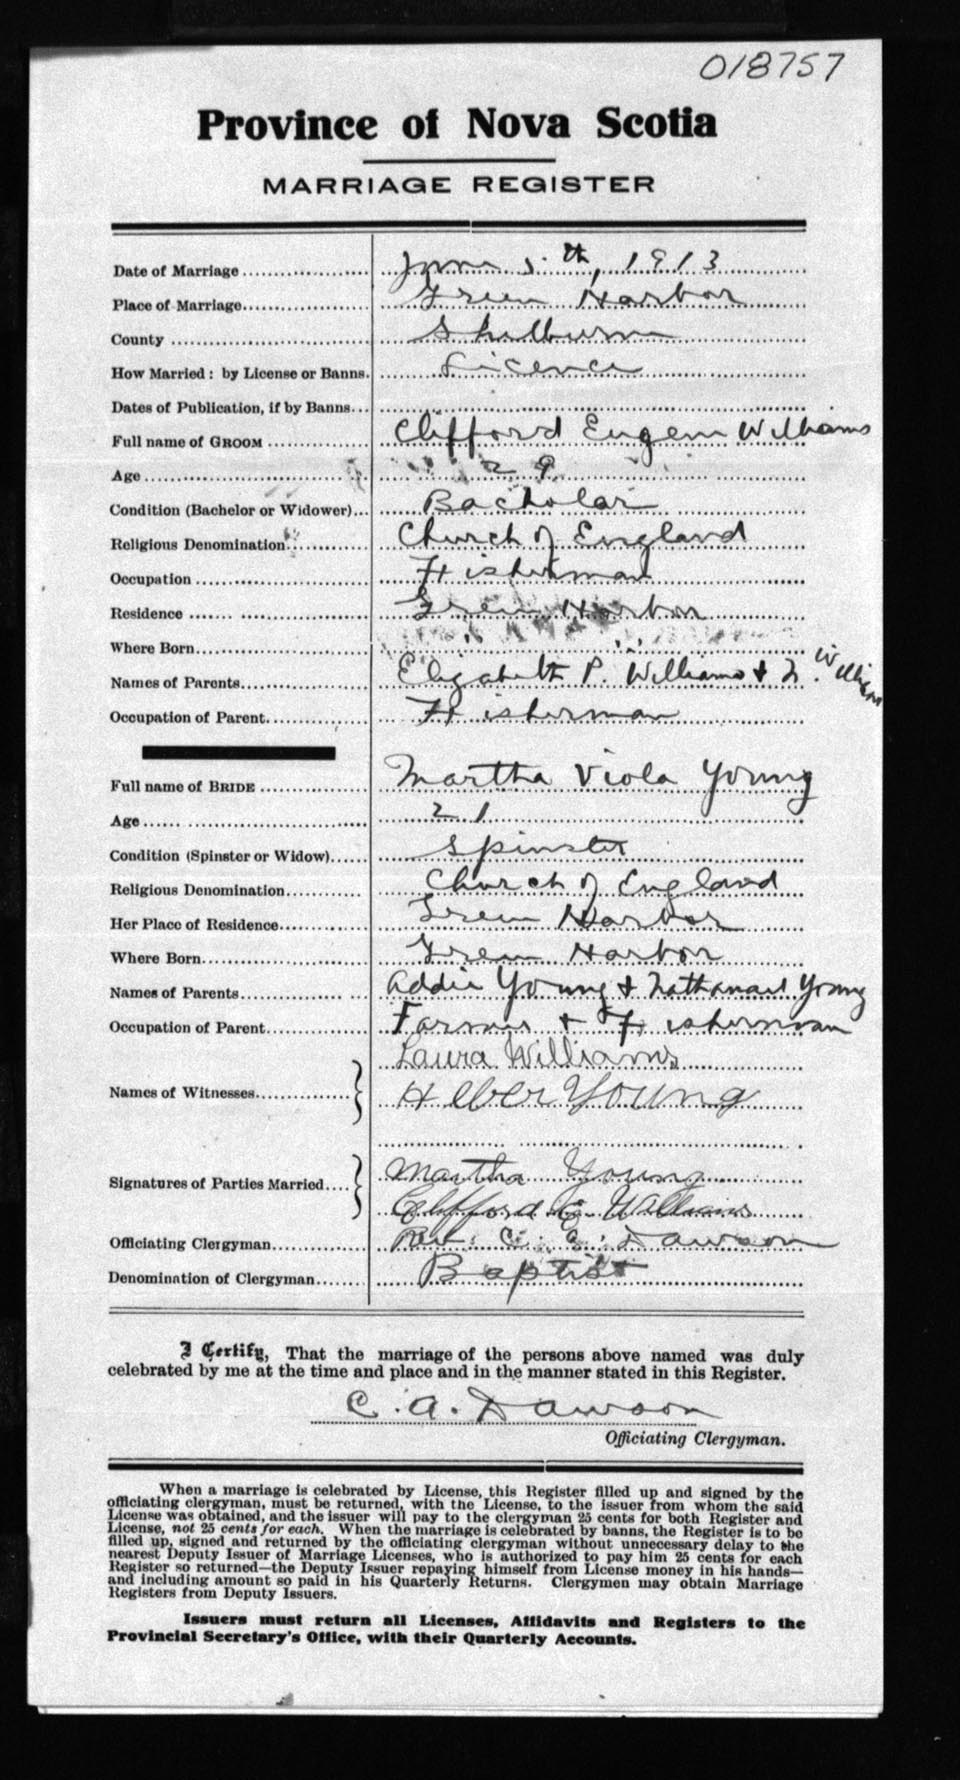 018757
Province of Nova Scotia
MARRIAGE REGISTER
Date of Marriage June 5th, 1913
Place of Marriage Green Harbor
County Shelburne
How Married: by License or Banns. Licence
Dates of Publication, if by Banns
Full name of GROOM Clifford Eugene Williams
Age 29
Condition (Bachelor or Widower) Bachelar
Religious Denomination Church of England
Occupation Fisherman
Residence Green Harbor
Where Born
Names of Parents Elizabeth P. Williams & Williams
Occupation of Parent Fisherman
Full name of BRIDE Martha Viola Young
Age 21
Condition (Spinster or Widow) Spinster
Religious Denomination Church of England
Her Place of Residence Green Harbor
Where Born Green Harbor
Names of Parents Addie Young & Nathanael Young
Occupation of Parent Farmer & Fisherman
Laura Williams
Names of Witnesses Heber Young
Martha Young
Signatures of Parties Married
Clifford E. Williams
Officiating Clergyman Rev. C. Dawson
Denomination of Clergyman Baptist
I Certify, That the marriage of the persons above named was duly
celebrated by me at the time and place and in the manner stated in this Register.
C. A. Dawson
Officiating Clergyman.
When a marriage is celebrated by License, this Register filled up and signed by the
officiating clergyman, must be returned, with the License, to the issuer from whom the said
License was obtained, and the issuer will pay to the clergyman 25 cents for both Register and
License, not 25 cents for each. When the marriage is celebrated by banns, the Register is to be
filled up, signed and returned by the officiating clergyman without unnecessary delay to the
nearest Deputy Issuer of Marriage Licenses, who is authorized to pay him 25 cents for each
Register so returned—the Deputy Issuer repaying himself from License money in his hands—
and including amount so paid in his Quarterly Returns. Clergymen may obtain Marriage
Registers from Deputy Issuers.
Issuers must return all Licenses, Affidavits and Registers to the
Provincial Secretary's Office, with their Quarterly Accounts.